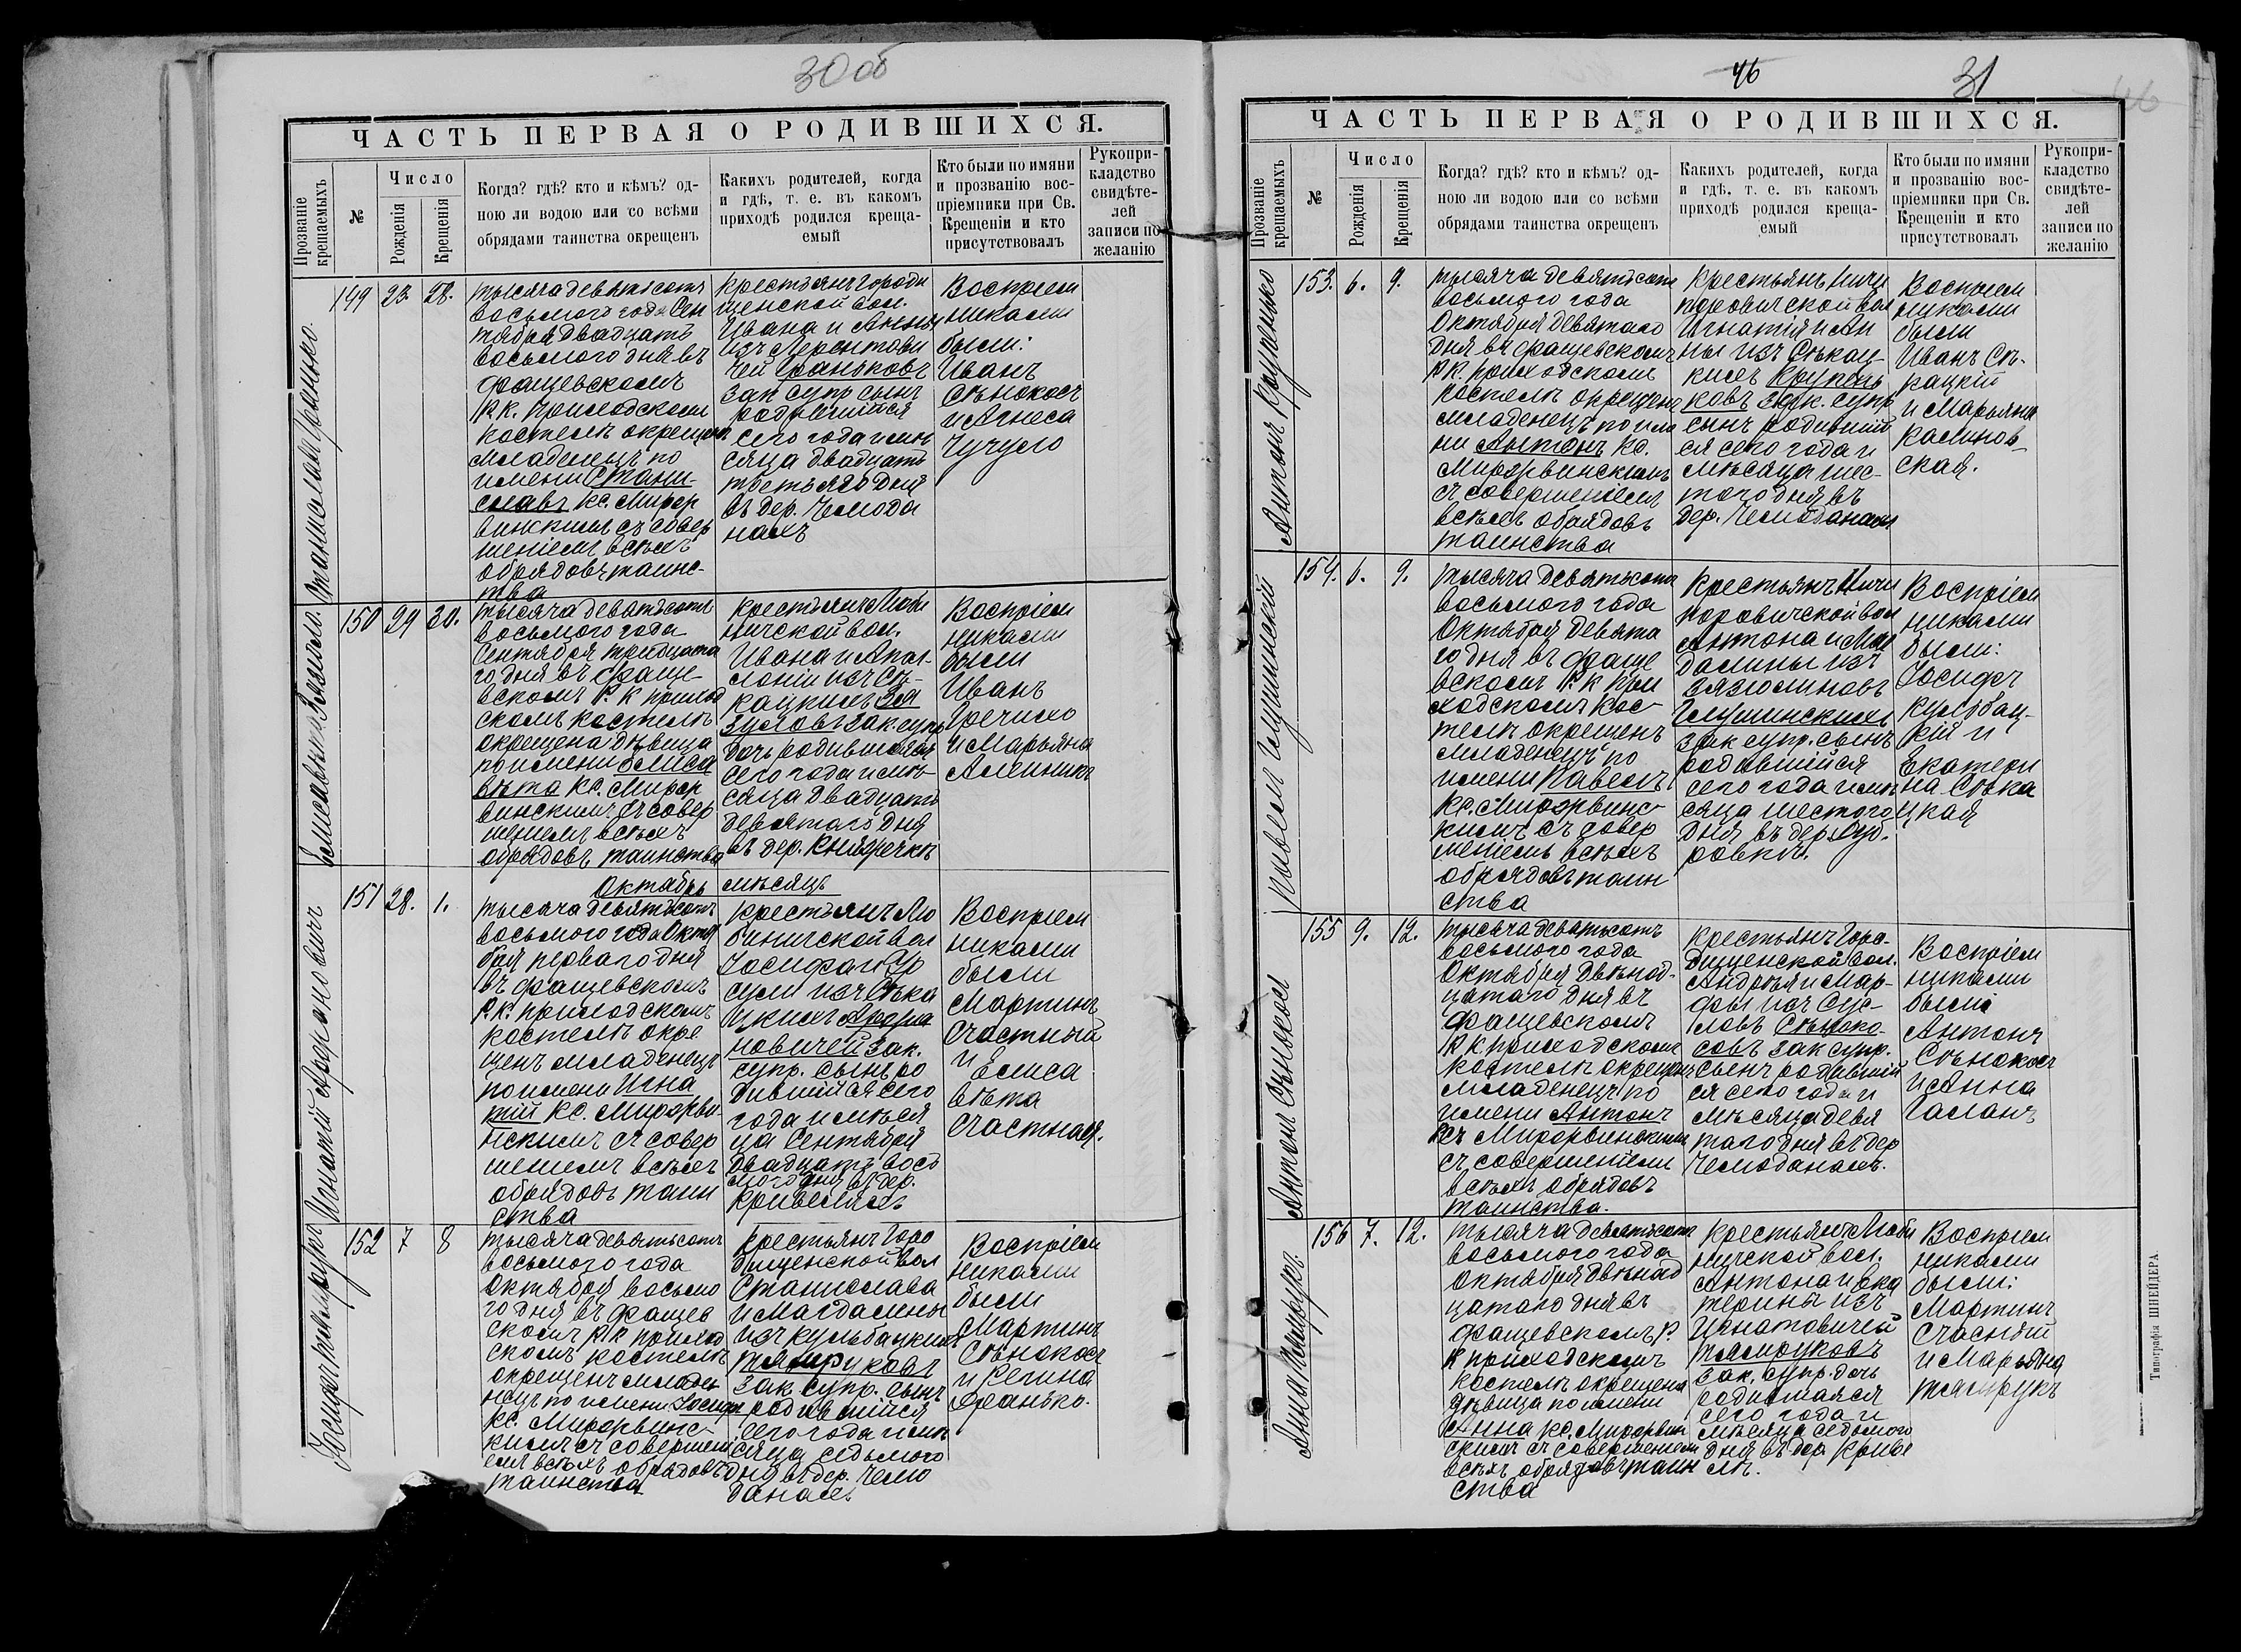 30об
ЧАСТЬ ПЕРВАЯ О РОДИВШИХСЯ.
Прозваніе крещаемыхъ
№
Число
Рожденія
Крещенія
Когда? гдѣ? кто и кѣмъ? од-
ною ли водою или со всѣми
обрядами таинства окрещенъ
Какихъ родителей, когда
и гдѣ, т. е. въ какомъ
приходѣ родился креща-
емый
Кто были по имяни
и прозванію вос-
пріемники при Св.
Крещеніи и кто
присутствовалъ
Рукопри-
кладство
свидѣте-
лей
записи по
желанію
Станиславъ Гранько.
149 23. 28.
тысяча девятьсотъ
восьмого года Сен
тября двадцать
восьмого дня въ
Фащевскомъ
Р. К. Приходскомъ
костелѣ окрещенъ
младенецъ по
имени Стани-
славъ Кс. Мирор
винскимъ съ совер
шеніемъ всѣхъ
обрядовъ таинс-
тва
крестьянъ Городи
щенской вол.
Ивана и Анны
изъ
Граньковъ
зак супр сынъ
родившійся
сего года и мѣ
сяца двадцать
третьяго дня
въ дер. Чемода
нахъ
Воспріем
никами
были:
Иванъ
Сѣнокосъ
и Агнеса
Чучуло
150 29 30.
тысяча девятьсотъ
восьмого года
Сентября тридцата
го дня въ Фаще-
вскомъ Р. К приход
скомъ костелѣ
окрещена дѣвица
по имени Елиса
вѣта Кс. Мирор
винскимъ съ совер
шеніемъ всѣхъ
обрядовъ таинства
крестьянъ Люби
ничской вол.
Ивана и Апол-
лоніи изъ Сѣ-
кацкихъ
зак. супр
дочь родившаяся
сего года и мѣ-
сяца двадцать
девятаго дня
въ дер.
Воспріем
никами
были
Иванъ
и Марьяна
Октябрь мѣсяцъ
Игнатій
151 28. 1.
тысяча девятьсотъ
восьмого года Октя
бря перваго дня
въ Фащевскомъ
Р. К. приходскомъ
костелѣ окре
щенъ младенецъ
по имени Игна
тій Кс. Мирорви-
нскимъ съ совер
шеніемъ всѣхъ
обрядовъ таин
ства
крестьянъ Лю
биничской вол
Іосифа и Ур
сули изъ Сѣка
цкихъ
новичей зак.
супр. сынъ ро
дившійся сего
года и мѣся
ца Сентября
двадцать вось
мого дня въ дер.
Воспріем
никами
были
Мартинъ
Счастный
и Елиса
вѣта
Счастная.
Іосифъ
152 7 8
тысяча девятьсотъ
восьмого года
Октября восьмо
го дня въ Фащев
скомъ Р К приход
скомъ костелѣ
окрещенъ младе
нецъ по имени Іосифъ
Кс. Мирорвинс-
кимъ съ совершені
емъ всѣхъ обрядовъ
таинства
крестьянъ Горо
дищенской вол
Станислава
и Магдалины
изъ Кульбацкихъ
Тямруковъ
зак супр. сынъ
родившійся
сего года и мѣ
сяца седьмого
дня въ дер. Чемо
данахъ
Воспріем
никами
были
Мартинъ
Сѣнокосъ
и Регина
Гранько.
46
31
46
ЧАСТЬ ПЕРВАЯ О РОДИВШИХСЯ.
Прозваніе крещаемыхъ
№
Число
Рожденія
Крещенія
Когда? гдѣ? кто и кѣмъ? од-
ною ли водою или со всѣми
обрядами таинства окрещенъ
Какихъ родителей, когда
и гдѣ, т. е. въ какомъ
приходѣ родился креща-
емый
Кто были по имяни
и прозванію вос-
пріемники при Св.
Крещеніи и кто
присутствовалъ
Рукопри-
кладство
свидѣте-
лей
записи по
желанію
Антонъ Крупенько
153. 6. 9.
тысяча девятьсотъ
восьмого года
Октября девятаго
дня въ Фащевскомъ
Р К приходскомъ
костелѣ окрещенъ
младенецъ по име
ни Антонъ Кс.
Мирорвинскимъ
съ совершеніемъ
всѣхъ обрядовъ
таинства
Крестьянъ Ничи
поровичской вол
Игнатія и Ан
ны изъ Сѣкац-
кихъ Крупень
ковъ зак. супр
сынъ родивший
ся сего года и
мѣсяца шес-
того дня въ
дер. Чемоданахъ
Воспріем
никами
были
Иванъ Сѣ-
кацкій
и Марьяна
Калинов-
ская.
Павелъ Глушинскій
154. 6. 9.
тысяча девятьсотъ
восьмого года
Октября девята
го дня въ Фаще
вскомъ Р. К при
ходскомъ кос-
телѣ окрещенъ
младенецъ по
имени Павелъ
Кс. Мирорвинс-
кимъ съ совер
шеніемъ всѣхъ
обрядовъ таин
ства
Крестьянъ Ничи
поровичской вол
Антона и Маг
далины изъ
Зязюлиновъ
Глушинскихъ
зак супр. сынъ
родившійся
сего года и мѣ
сяца шестого
дня въ дер.
Воспріем
никами
были:
Іосифъ
Кульбац-
кій и
Екатери
на Сѣка
цкая
Антонъ Сѣнокосъ
155 9. 12.
тысяча девятьсотъ
восьмого года
Октября двѣнад-
цатаго дня въ
Фащевскомъ
Р К приходскомъ
костелѣ окрещенъ
младенецъ по
имени Антонъ
Кс. Мирорвинскимъ
съ совершеніемъ
всѣхъ обрядовъ
таинства.
крестьянъ Горо-
дищенской вол.
Андрея и Мар-
фы изъ Сус-
ловъ Сѣноко-
совъ зак супр.
сынъ родивший
ся сего года и
мѣсяца девя
таго дня въ дер
Чемоданахъ.
Воспріем
никами
были
Антонъ
Сѣнокосъ
и Анна
Галанъ
Анна Тямрукъ.
156 7. 12.
тысяча девятьсотъ
восьмого года
Октября двѣнад
цатаго дня въ
Фащевскомъ Р.
К приходскомъ
костелѣ окрещена
дѣвица по имени
Анна Кс. Мирорвин
скимъ съ совершеніемъ
всѣхъ обрядовъ таин
ства
крестьянъ Люби
ничской вол.
Антона и Ека
терины изъ
Игнатовичей
Тямруковъ
зак. супр. дочь
родившаяся
сего года и
мѣсяца седьмого
дня въ дер.
Воспріем
никами
были:
Мартинъ
Счасный
и Марьяна
Тямрукъ
Типографія ШНЕЙДЕРА